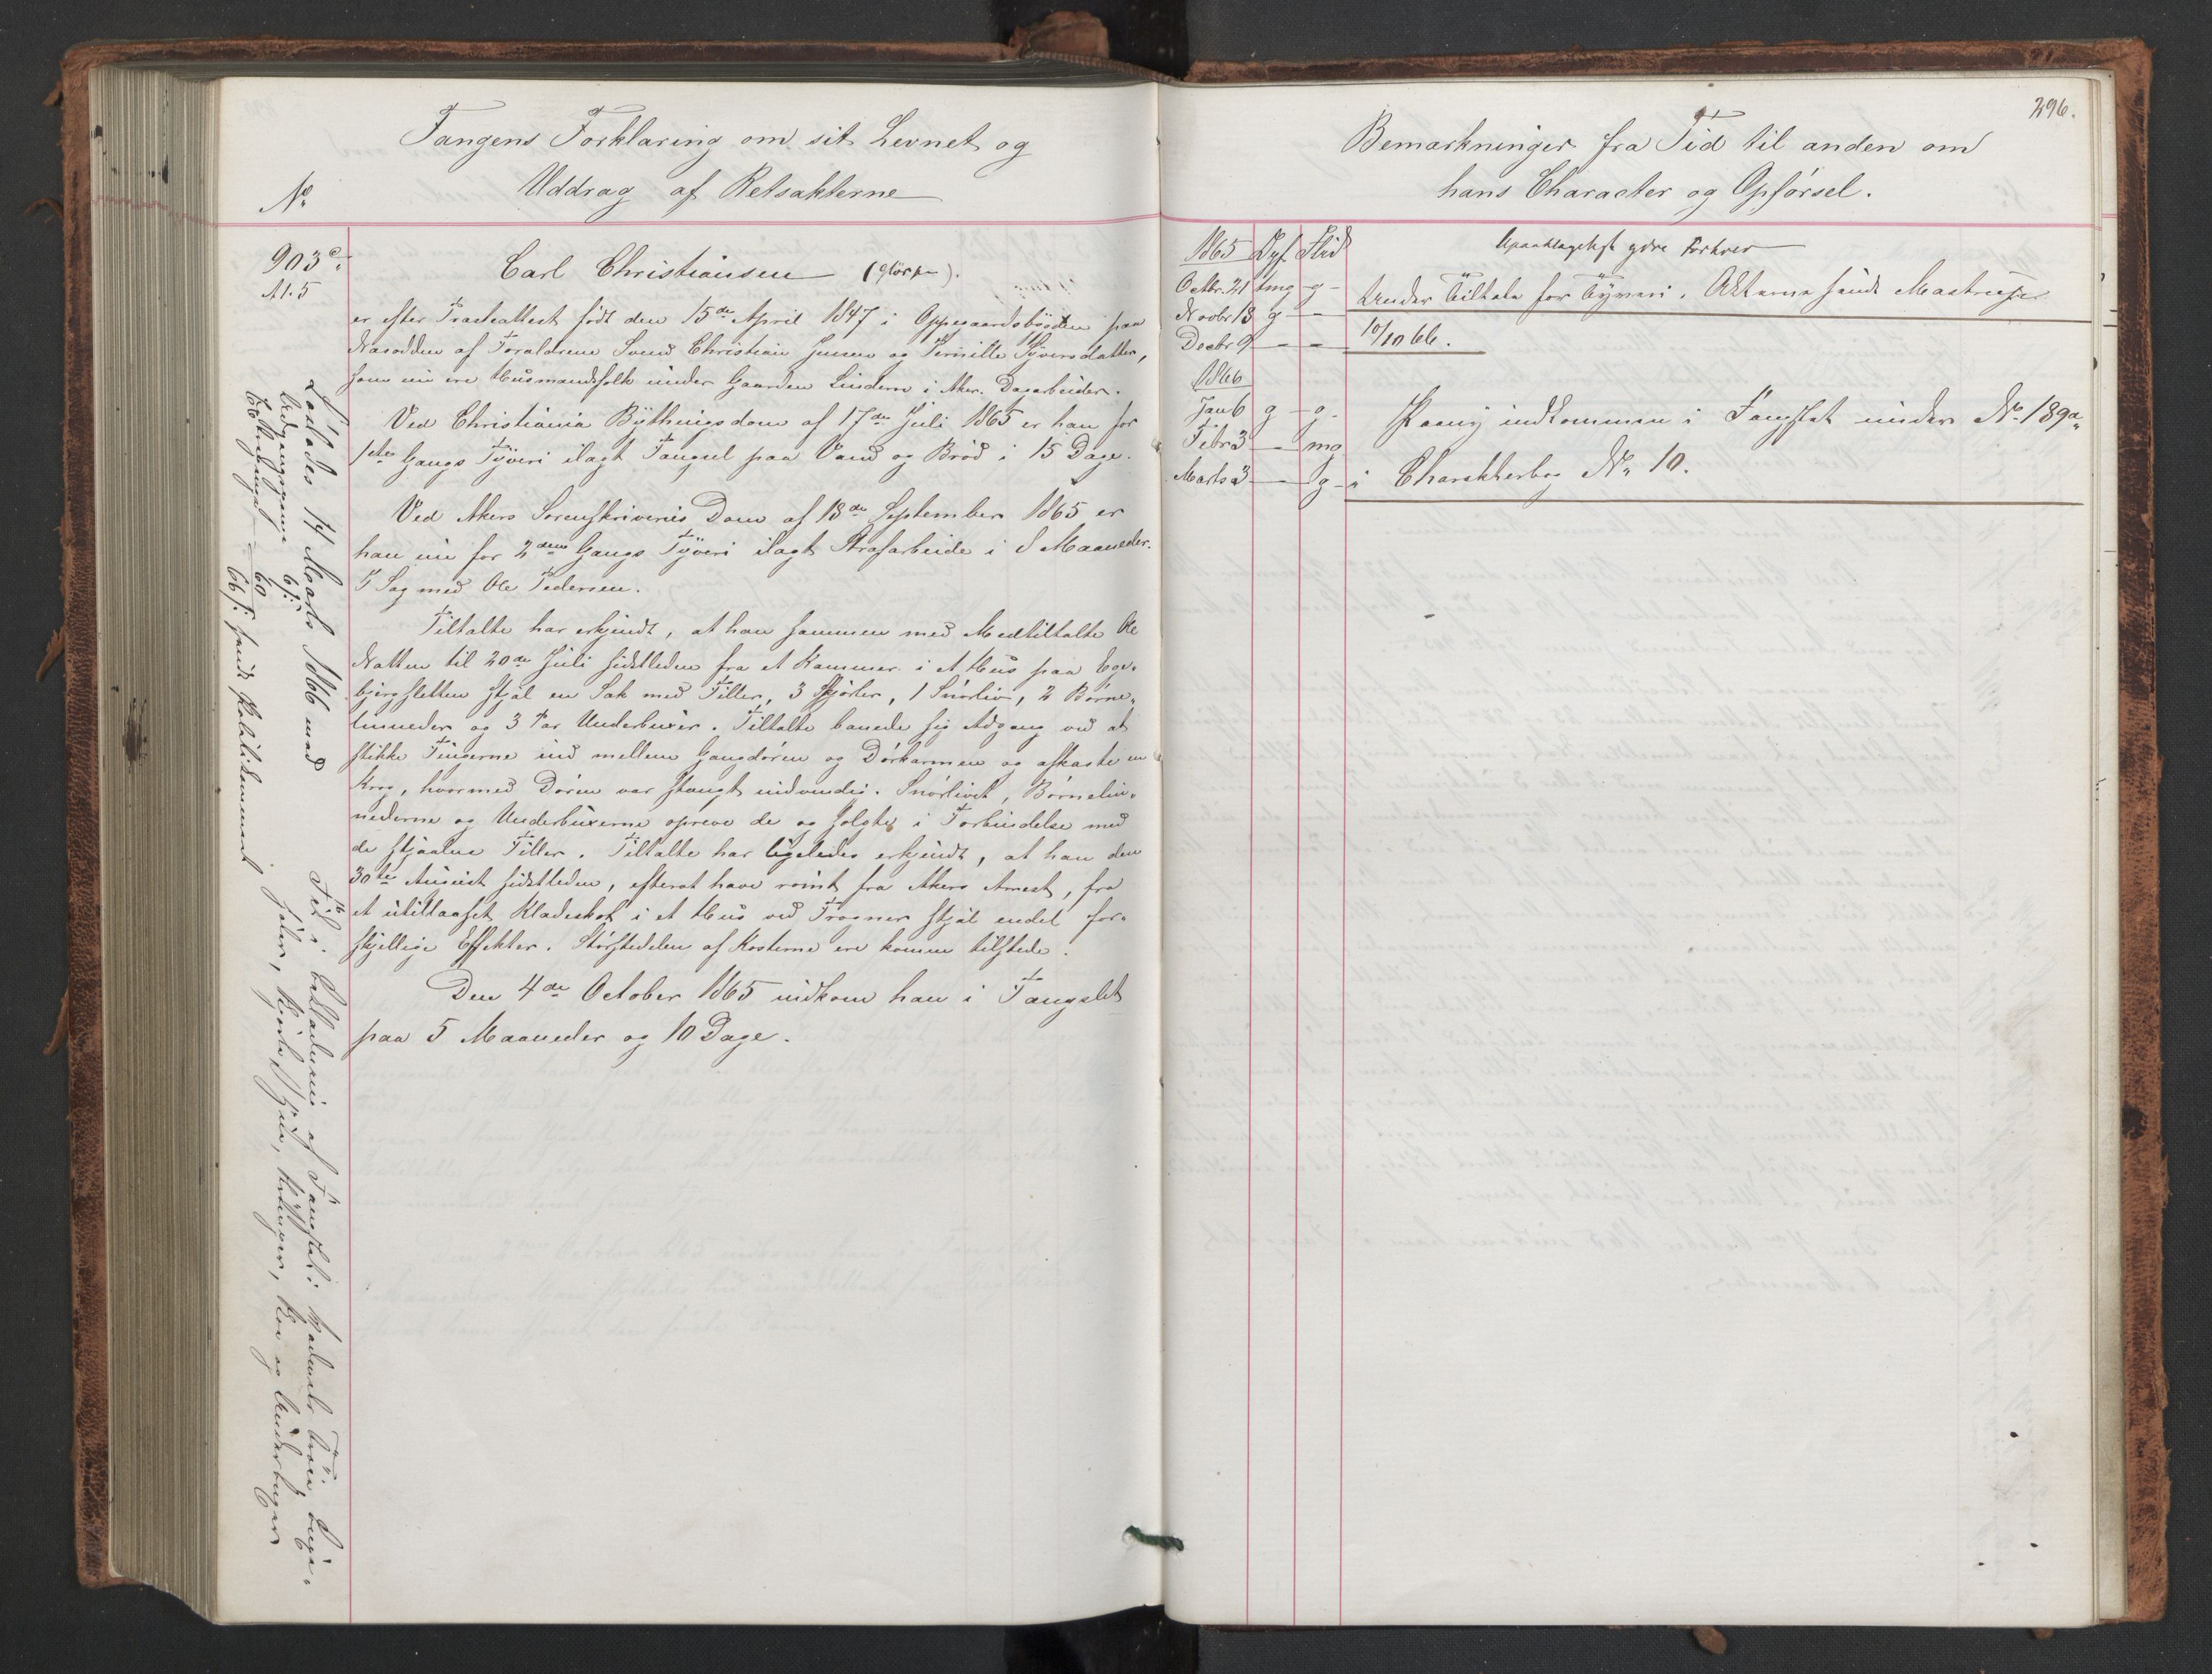 Fangens Forklaring om sit Levnet og
Uddrag af Retsakterne
No
903c
A1.5
Carl Christiansen
er efter Præsteattest født den 15de April 1847 i Oppegaardsbøgden paa
Næsodden af Forældrene Svend Christian Jensen og Pernille Syversdatter,
som nu ere Husmandsfolk under Gaarden Lindern i Aker. Dagarbeider.
Ved Christiania Bythingsdom af 17de Juli 1865 er han for
1ste Gangs Tyveri ilagt Fængsel paa Vand og Brød i 15 Dage.
Ved Akers Sorenskriveries Dom af 13de September 1865 er
han nu for 2den Gangs Tyveri ilagt Strafarbeide i 5 Maaneder.
I Sag med Ole Pedersen.
Tiltalte har erkjendt, at han sammen med Medtiltalte Ole
Natten til 20de Juli sidstleden fra et Kammer i et Hus paa Ege-
bjergsletten stjal en Sæk med Filler, 3 Skjorter, 1 Snørliv, 2 Børne-
linneder og 3 Par Underbuxer. Tiltalte banede sig Adgang ved at
stikke Fingerne ind mellem Gangdøren og Dørkarmen og afkaste en
Krog, hvormed Døren var stængt indvendig. Snørlivet, Børnelin-
nederne og Underbuxerne oprev de og solgte i Forbindelse med
de stjaalne Filler. Tiltalte har ligeledes erkjendt, at han den
30te August sidstleden, efterat have rømt fra Akers Arrest, fra
et utillaaset Klædeskab i et Hus ved Frogner stjal endel for-
skjellige Effekter. Størstedelen af Kosterne ere komne tilstede.
Den 4de October 1865 indkom han i Fængslet
paa 5 Maaneder og 10 Dage.
Løslades 14 Marts 1866 med
6 s:
60
66 s:
Fik i Beklædning af Fængslet: Vadmels Trøie,
Skjorte, Strømper, Sko og Underbuxer
296.
Bemærkninger fra Tid til anden om
hans Character og Opførsel.
1865 Opf. Flid
Octbr. 21 tmg - g -
Novbr 18 g - -
Decbr 9 - -
1866
Jan 6 g - g
Febr 3 - mg
Marts 3 - g -
Upaaklageligt ydre Forhold
Under Tiltale for Tyveri. Akterne sendt
10/10 66.
Paany indkommen i Fængslet under No 189a
i Charakterbog No 10.